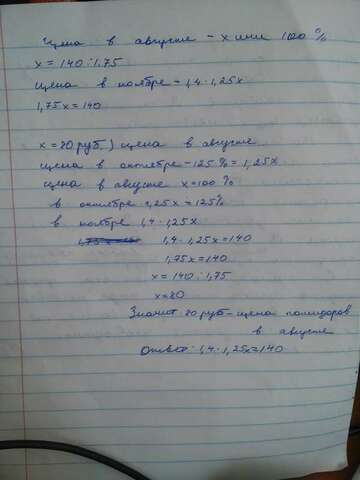 Цена в августе - x или 100%
x = 140 : 1,75
цена в ноябре - 1,4 · 1,25x
1,75x = 140
x = 80 руб. ) цена в августе
цена в октябре - 125% = 1,25x
цена в августе x = 100%
в октябре 1,25x = 125%
в ноябре 1,4 · 1,25x
1,4 · 1,25x = 140
1,75x = 140
x = 140 : 1,75
x = 80
Значит 80 руб - цена помидоров
в августе
Ответ: 1,4 · 1,25x = 140